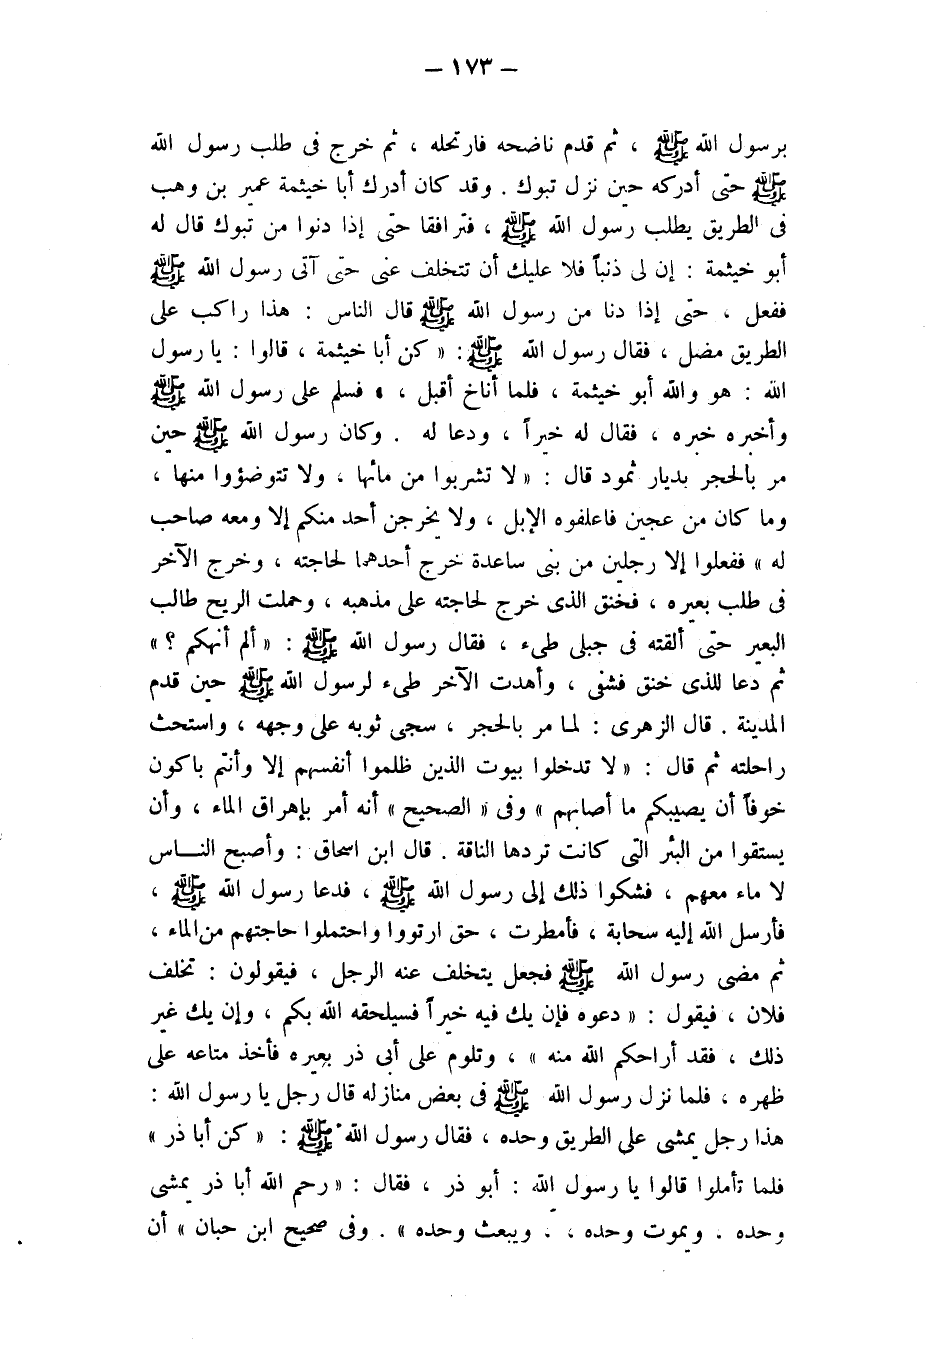 – ١٧٣ –
برسول الله ﷺ ، ثم قدم ناضحه فارتحله ، ثم خرج فى طلب رسول الله
ﷺ حتى أدركه حين نزل تبوك . وقد كان أدرك أبا خيثمة عمير بن وهب
فى الطريق يطلب رسول الله ﷺ ، فترافقا حتى إذا دنوا من تبوك قال له
أبو خيثمة : إن لى ذنباً فلا عليك أن تتخلف عنى حتى آتى رسول الله ﷺ
ففعل ، حتى إذا دنا من رسول الله ﷺ قال الناس : هذا راكب على
الطريق مضل ، فقال رسول الله ﷺ : « كن أبا خيثمة ، قالوا : يا رسول
الله : هو والله أبو خيثمة ، فلما أناخ أقبل ، ، فسلم على رسول الله ﷺ
وأخبره خبره ، فقال له خيراً ، ودعا له . وكان رسول الله ﷺ حين
مر بالحجر بديار ثمود قال : « لا تشربوا من مائها ، ولا تتوضؤوا منها ،
وما كان من عجين فاعلفوه الإبل ، ولا يخرجن أحد منكم إلا ومعه صاحب
له » ففعلوا إلا رجلين من بنى ساعدة خرج أحدهما لحاجته ، وخرج الآخر
فى طلب بعيره ، فخنق الذى خرج لحاجته على مذهبه ، وحملت الريح طالب
البعير حتى ألقته فى جبلى طىء ، فقال رسول الله ﷺ : « ألم أنهكم ؟ »
ثم دعا للذى خنق فشفى ، وأهدت الآخر طىء لرسول الله ﷺ حين قدم
المدينة . قال الزهرى : لما مر بالحجر ، سجى ثوبه على وجهه ، واستحث
راحلته ثم قال : « لا تدخلوا بيوت الذين ظلموا أنفسهم إلا وأنتم باكون
خوفاً أن يصيبكم ما أصابهم » وفى « الصحيح » أنه أمر بإهراق الماء ، وأن
يستقوا من البئر التى كانت تردها الناقة . قال ابن اسحاق : وأصبح النـــاس
لا ماء معهم ، فشكوا ذلك إلى رسول الله ﷺ ، فدعا رسول الله ﷺ ،
فأرسل الله إليه سحابة ، فأمطرت ، حق ارتووا واحتملوا حاجتهم من الماء ،
ثم مضى رسول الله ﷺ فجعل يتخلف عنه الرجل ، فيقولون : تخلف
فلان ، فيقول : « دعوه فإن يك فيه خيراً فسيلحقه الله بكم ، وإن يك غير
ذلك ، فقد أراحكم الله منه » ، وتلوم على أبى ذر بعيره فأخذ متاعه على
ظهره ، فلما نزل رسول الله ﷺ فى بعض منازله قال رجل يا رسول الله :
هذا رجل يمشى على الطريق وحده ، فقال رسول الله ﷺ : « كن أبا ذر »
فلما تأملوا قالوا يا رسول الله : أبو ذر ، فقال : « رحم الله أبا ذر يمشى
وحده ، ويموت وحده ، ، ويبعث وحده » . وفى صحيح ابن حبان » أن